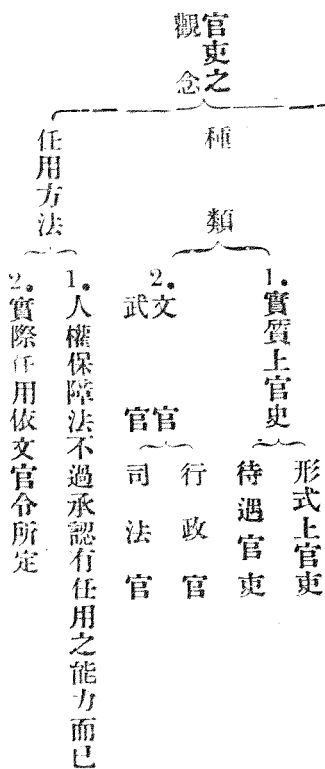 官吏之
觀念
種類
1.實質上官吏
形式上官吏
待遇官吏
2.文官
武官
行政官
司法官
任用方法
1.人權保障法不過承認有任用之能力而已
2.實際任用依文官令所定